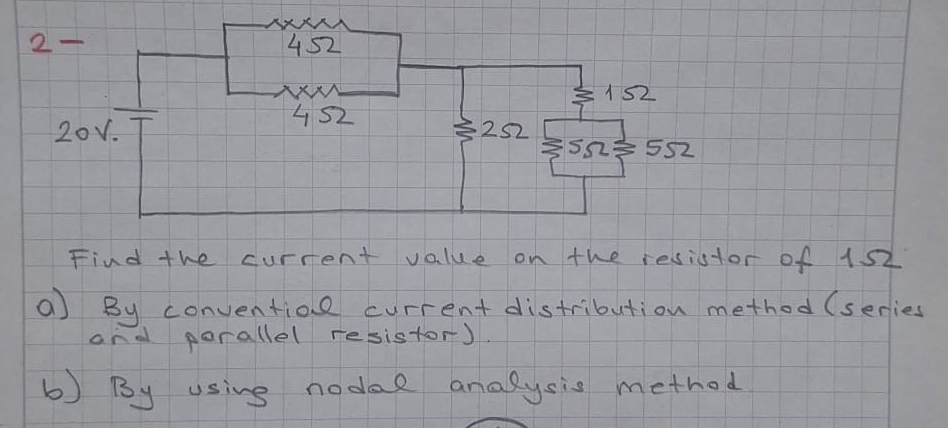 2-
4Ω
4Ω
20V.
1Ω
2Ω
5Ω 5Ω
Find the current value on the resistor of 1Ω
a) By conventioal current distribution method (series
and parallel resistor).
b) By using nodal analysis method